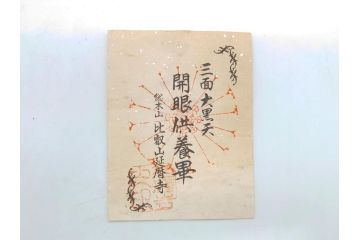 三面大黒天
開眼供養畢
総本山比叡山延暦寺